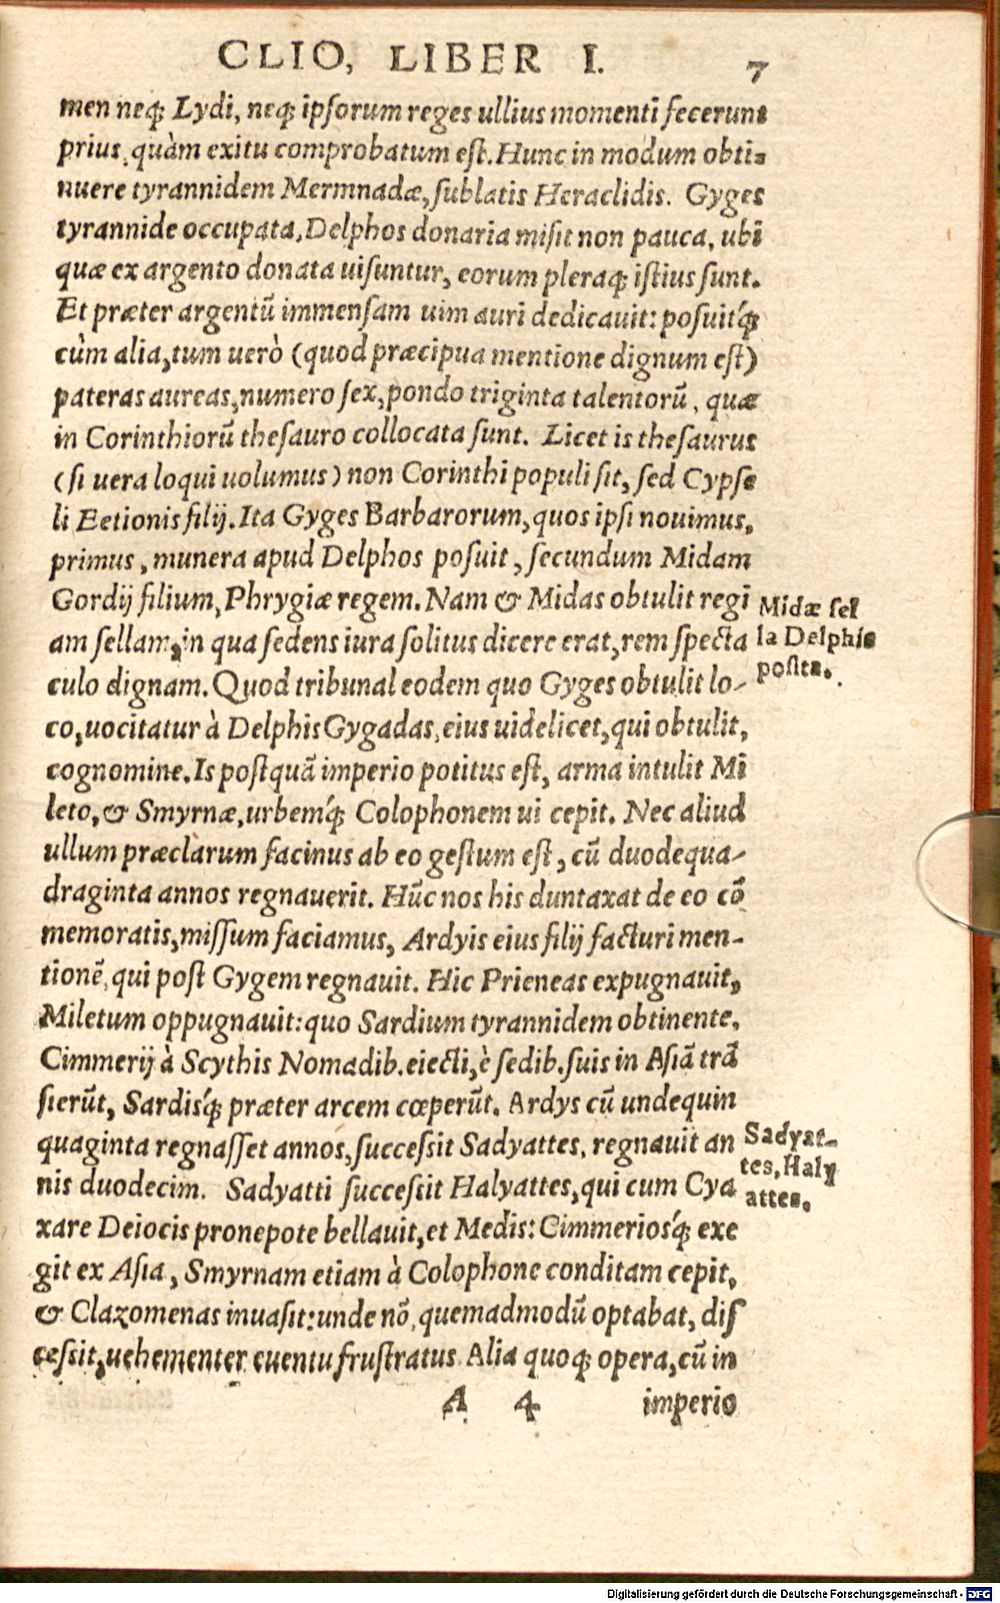 CLIO, LIBER I. 7
men neq́; Lydi, neq́; ipſorum reges ullius momenti fecerunt
prius, quàm exitu comprobatum eſt. Hunc in modum obti-
nuere tyrannidem Mermnadæ, ſublatis Heraclidis. Gyges
tyrannide occupata, Delphos donaria miſit non pauca, ubi
quæ ex argento donata uiſuntur, eorum pleraq́; iſtius ſunt.
Et præter argentũ immenſam uim auri dedicauit: poſuitq́;
cùm alia, tum uerò (quod præcipua mentione dignum eſt)
pateras aureas, numero ſex, pondo triginta talentorũ, quæ
in Corinthiorũ theſauro collocata ſunt. Licet is theſaurus
(ſi uera loqui uolumus) non Corinthi populi ſit, ſed Cypſe
li Eetionis filij. Ita Gyges Barbarorum, quos ipſi nouimus,
primus, munera apud Delphos poſuit, ſecundum Midam
Gordij filium, Phrygiæ regem. Nam & Midas obtulit regi
am ſellam, in qua ſedens iura ſolitus dicere erat, rem ſpecta
culo dignam. Quod tribunal eodem quo Gyges obtulit lo-
co, uocitatur à Delphis Gygadas, eius uidelicet, qui obtulit,
cognomine. Is poſtquã imperio potitus eſt, arma intulit Mi
leto, & Smyrnæ, urbemq́; Colophonem ui cepit. Nec aliud
ullum præclarum facinus ab eo geſtum eſt, cũ duodequa-
draginta annos regnauerit. Hũc nos his duntaxat de eo cõ
memoratis, miſſum faciamus, Ardyis eius filij facturi men-
tionẽ, qui poſt Gygem regnauit. Hic Prieneas expugnauit,
Miletum oppugnauit: quo Sardium tyrannidem obtinente,
Cimmerij à Scythis Nomadib. eiecti, è ſedib. ſuis in Aſiã trã
ſierũt, Sardisq́; præter arcem cœperũt. Ardys cũ undequin
quaginta regnaſſet annos, ſucceſsit Sadyattes, regnauit an
nis duodecim. Sadyatti ſucceſsit Halyattes, qui cum Cya
xare Deiocis pronepote bellauit, et Medis: Cimmeriosq́; exe
git ex Aſia, Smyrnam etiam à Colophone conditam cepit,
& Clazomenas inuaſit: unde nõ, quemadmodũ optabat, diſ
ceſsit, uehementer euentu fruſtratus. Alia quoq́; opera, cũ in
A 4 imperio
Midæ ſel
la Delphis
poſita.
Sadyat-
tes, Haly
attes.
Digitalisierung gefördert durch die Deutsche Forschungsgemeinschaft - DFG